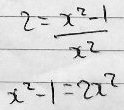 2 = \frac{x^2-1}{x^2}
x^2-1 = 2x^2